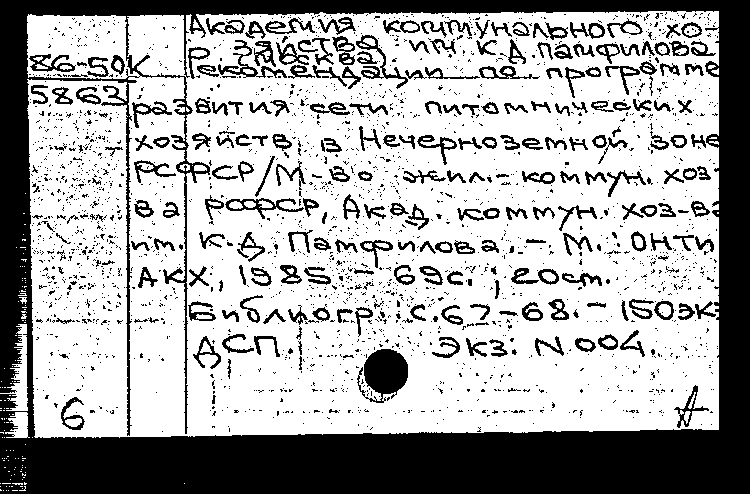 Академия коммунального хо-
зяйства им К.Д Памфилова
(Москва).
86-50К
Рекомендации по программе
5863
развития сети питомнических
хозяйств в Нечерноземной зоне
РСФСР/М-во жил.- коммун. хоз-
ва РСФСР, Акад. коммун. хоз-ва
им. К.Д. Памфилова. - М.: ОНТИ
АКХ, 1985 - 69с.; 20см.
Библиогр.: с.67-68. - 150эк
ДСП. Экз. N 004.
6